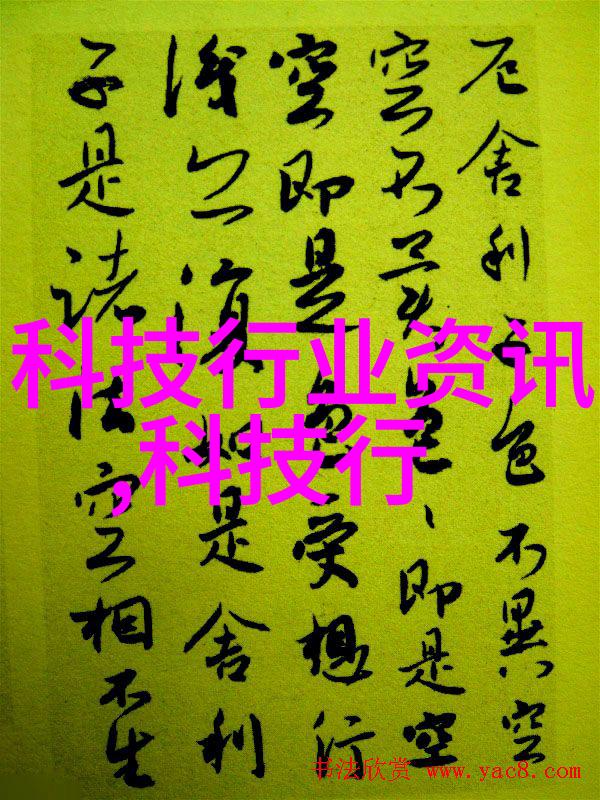 厄舍利子色不異空
空不異色、即是空
空即是色受想行
識亦復如是舍利
子是諸法空相不生
科技行业资讯
,科技行
书法欣赏 www.yac8.com